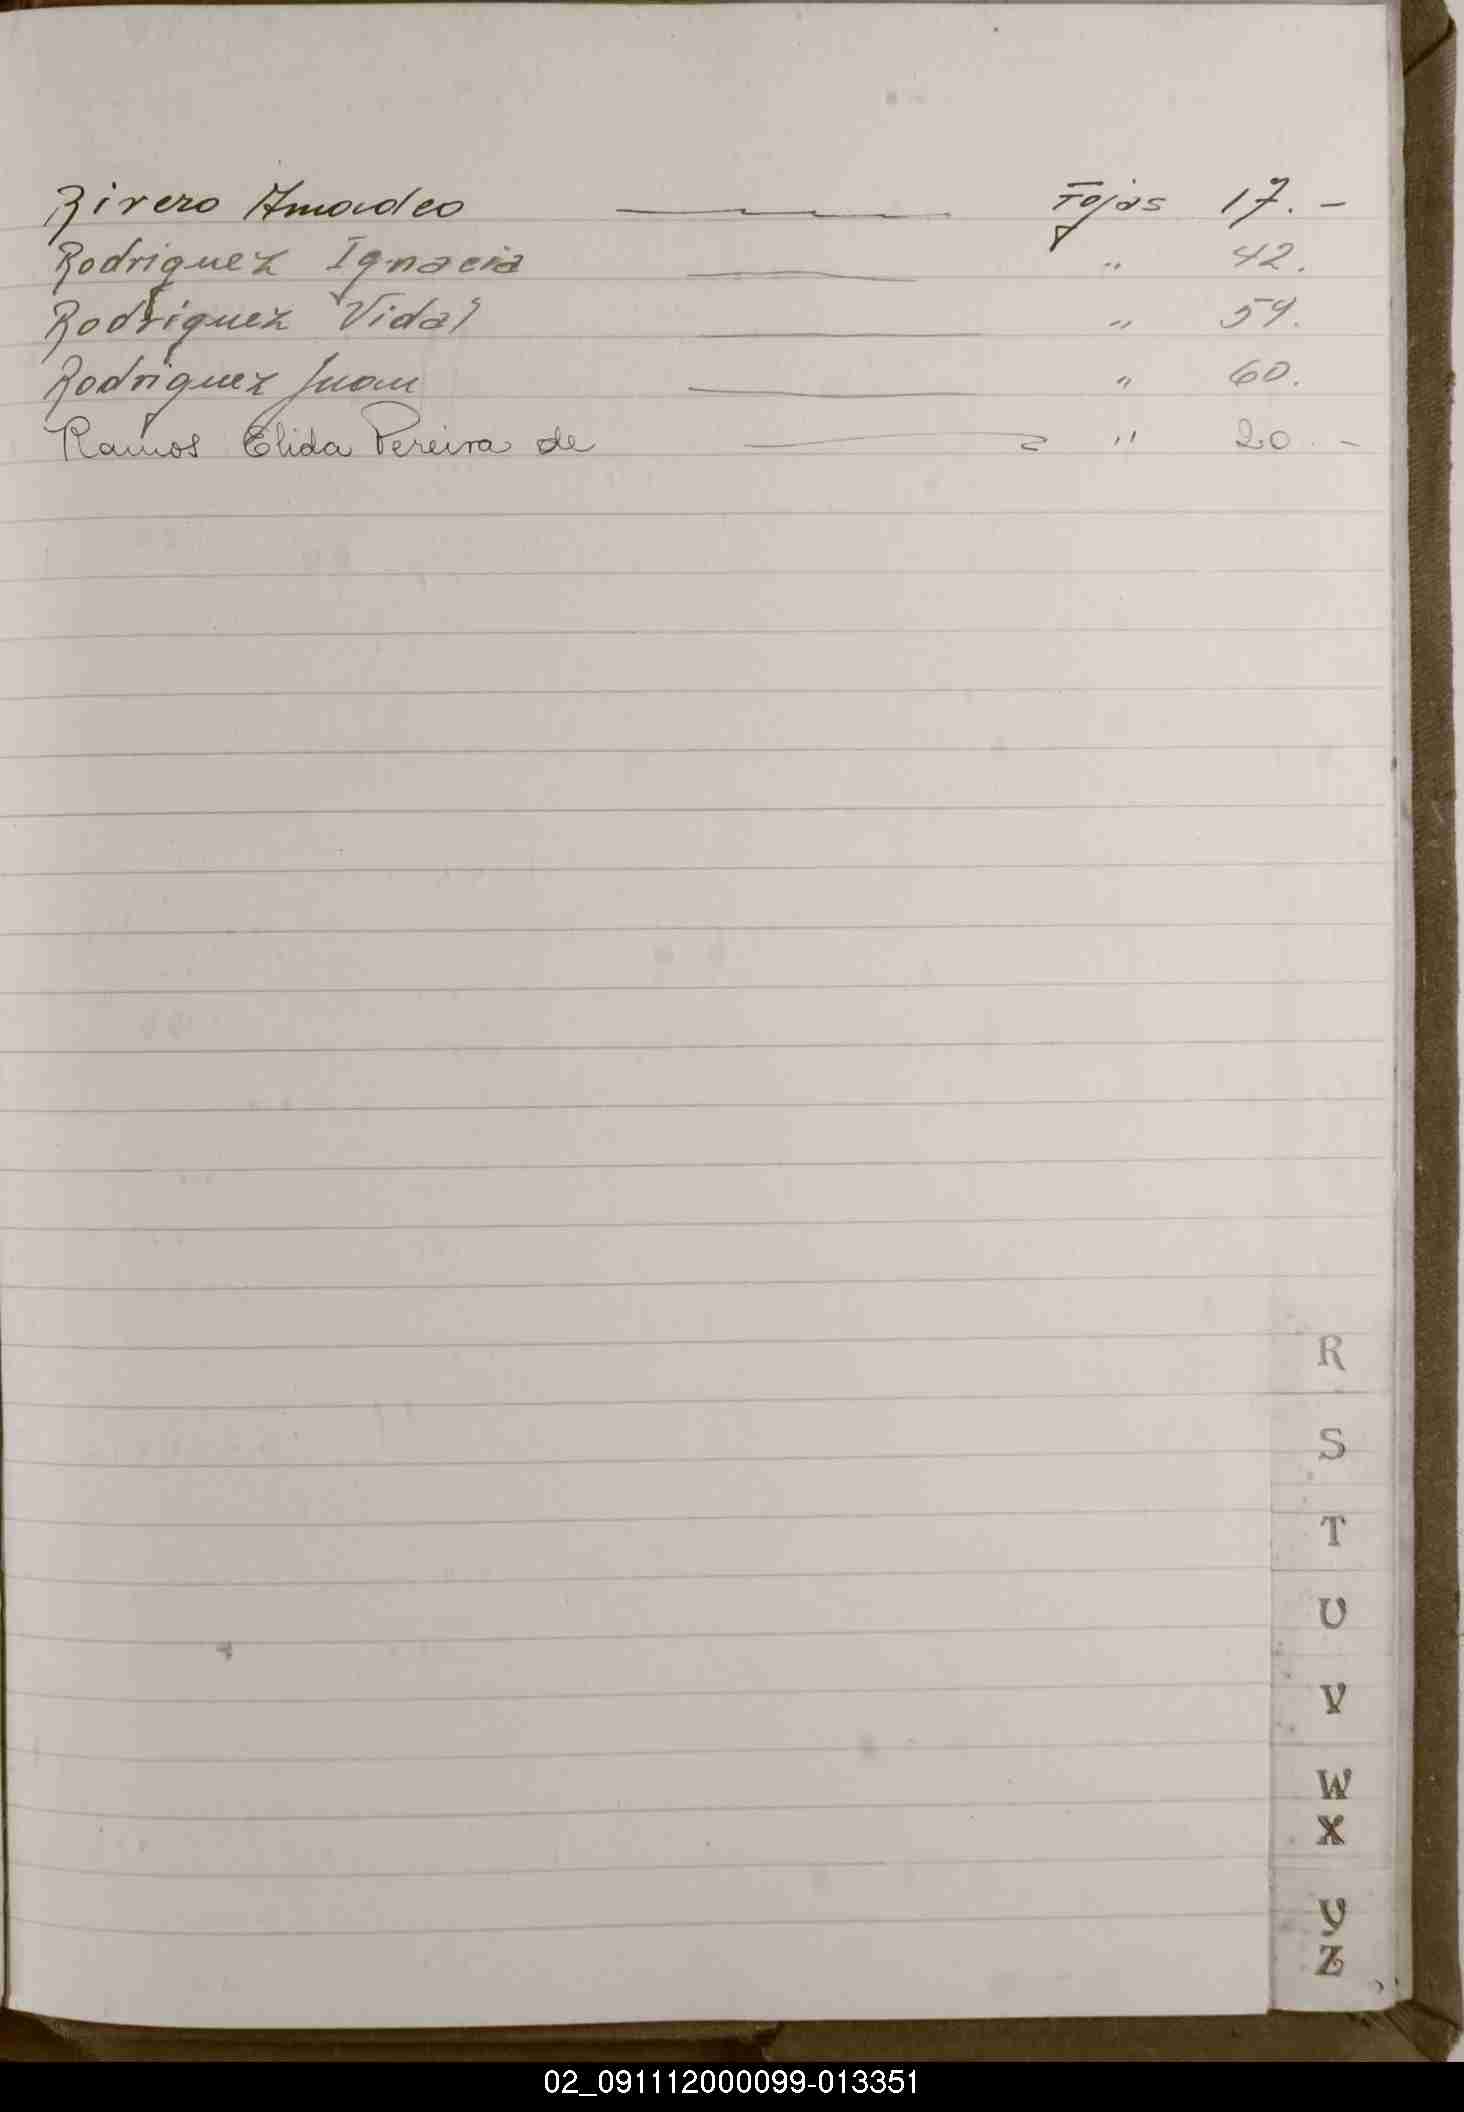 Rivero Amadeo ——— Fojas 17. -
Rodriguez Ignacia ——— " 42.
Rodriguez Vidal ——— " 59.
Rodriguez Juan ——— " 60.
Ramos Elida Pereira de ——— " 20. -
R
S
T
U
V
W
X
Y
Z
02_091112000099-013351